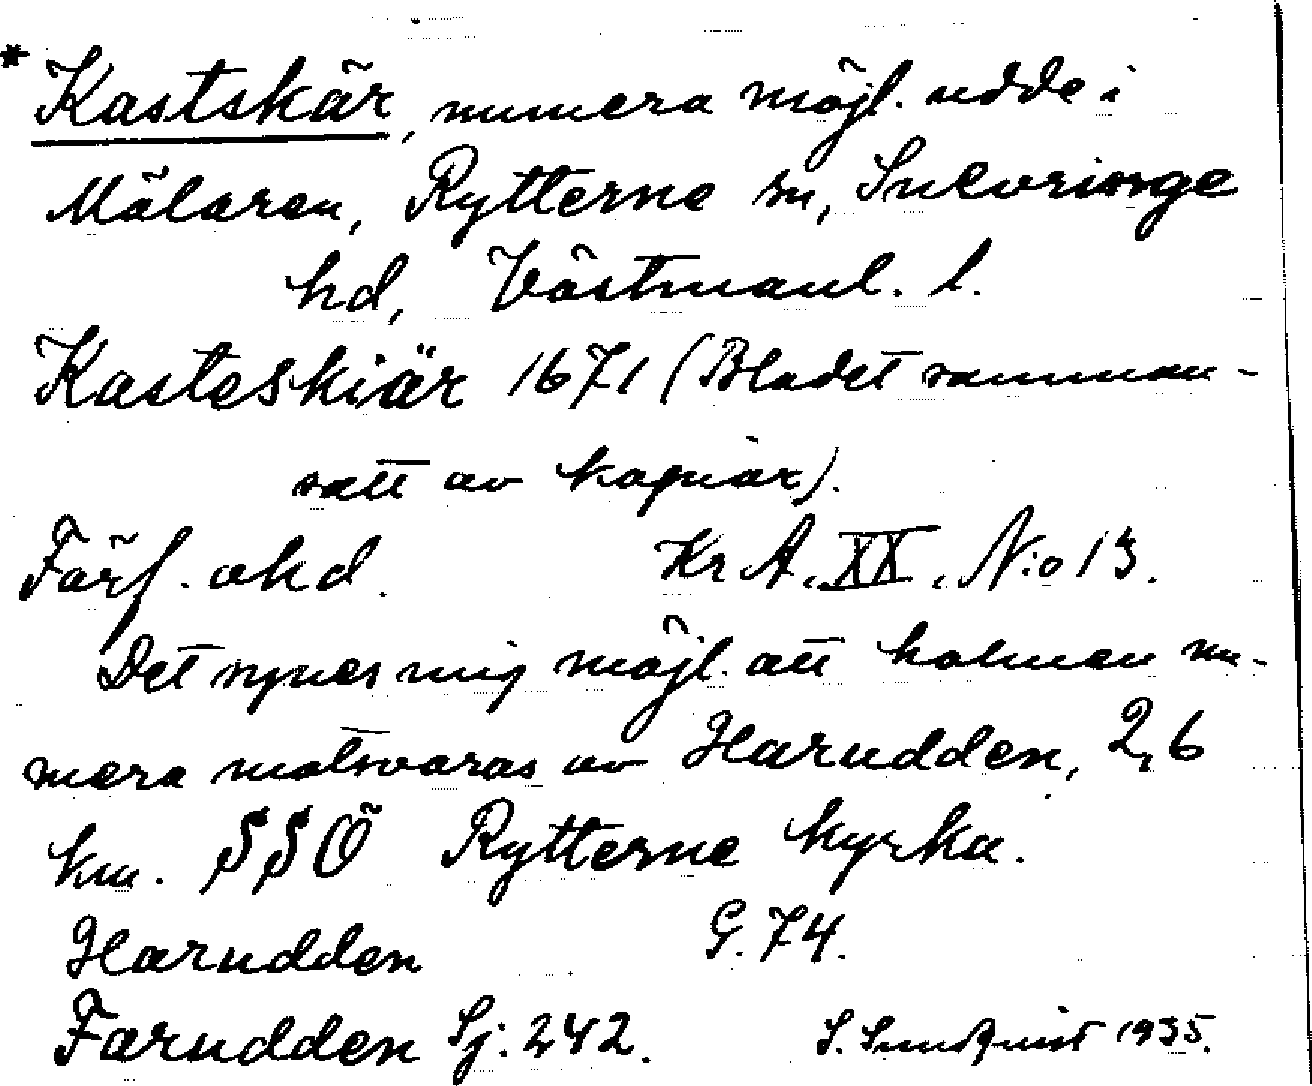 * Kastskär, numera möjl. udde i
Mälaren, Rytterne sn, Snevringe
hd, Västmanl. l.
Kasteskiär 1671 (Bladet samman-
satt av kopior).
Förf. okd. KrA. XX. N:o 13.
Det synes mig möjl. att holmen nu-
mera motsvaras av Harudden, 2,6
km. SSÖ Rytterne kyrka.
Harudden G. 74.
Farudden Sj. 242. S. Sundquist 1935.